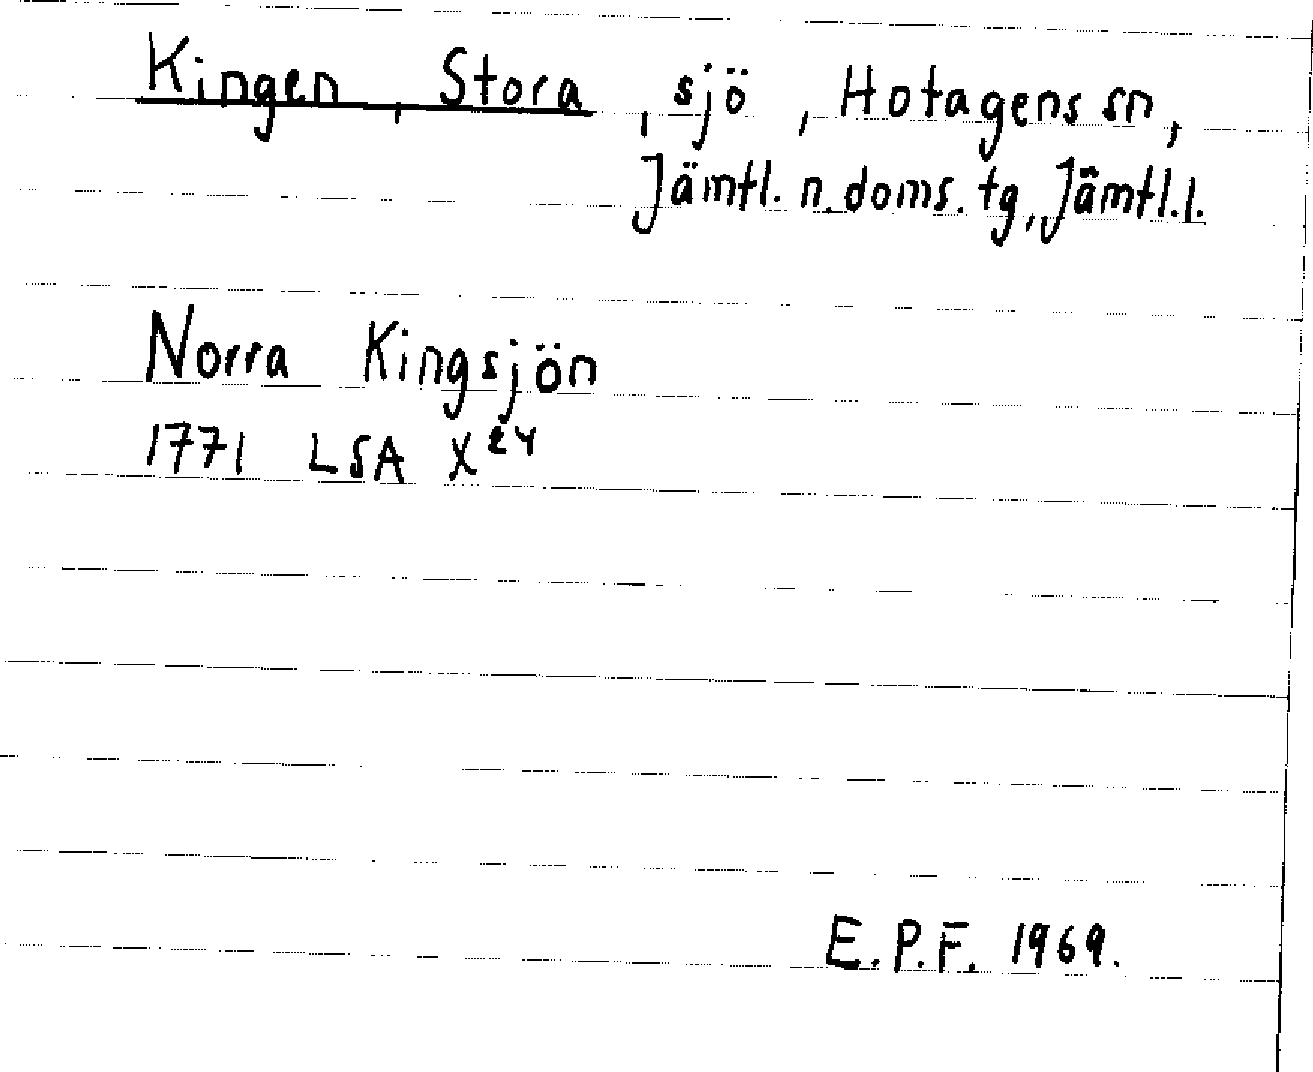 Kingen, Stora, sjö, Hotagens sn,
Jämtl. n. doms. tg, Jämtl. l.
Norra Kingsjön
1771 LSA X²⁴
E.P.F. 1969.